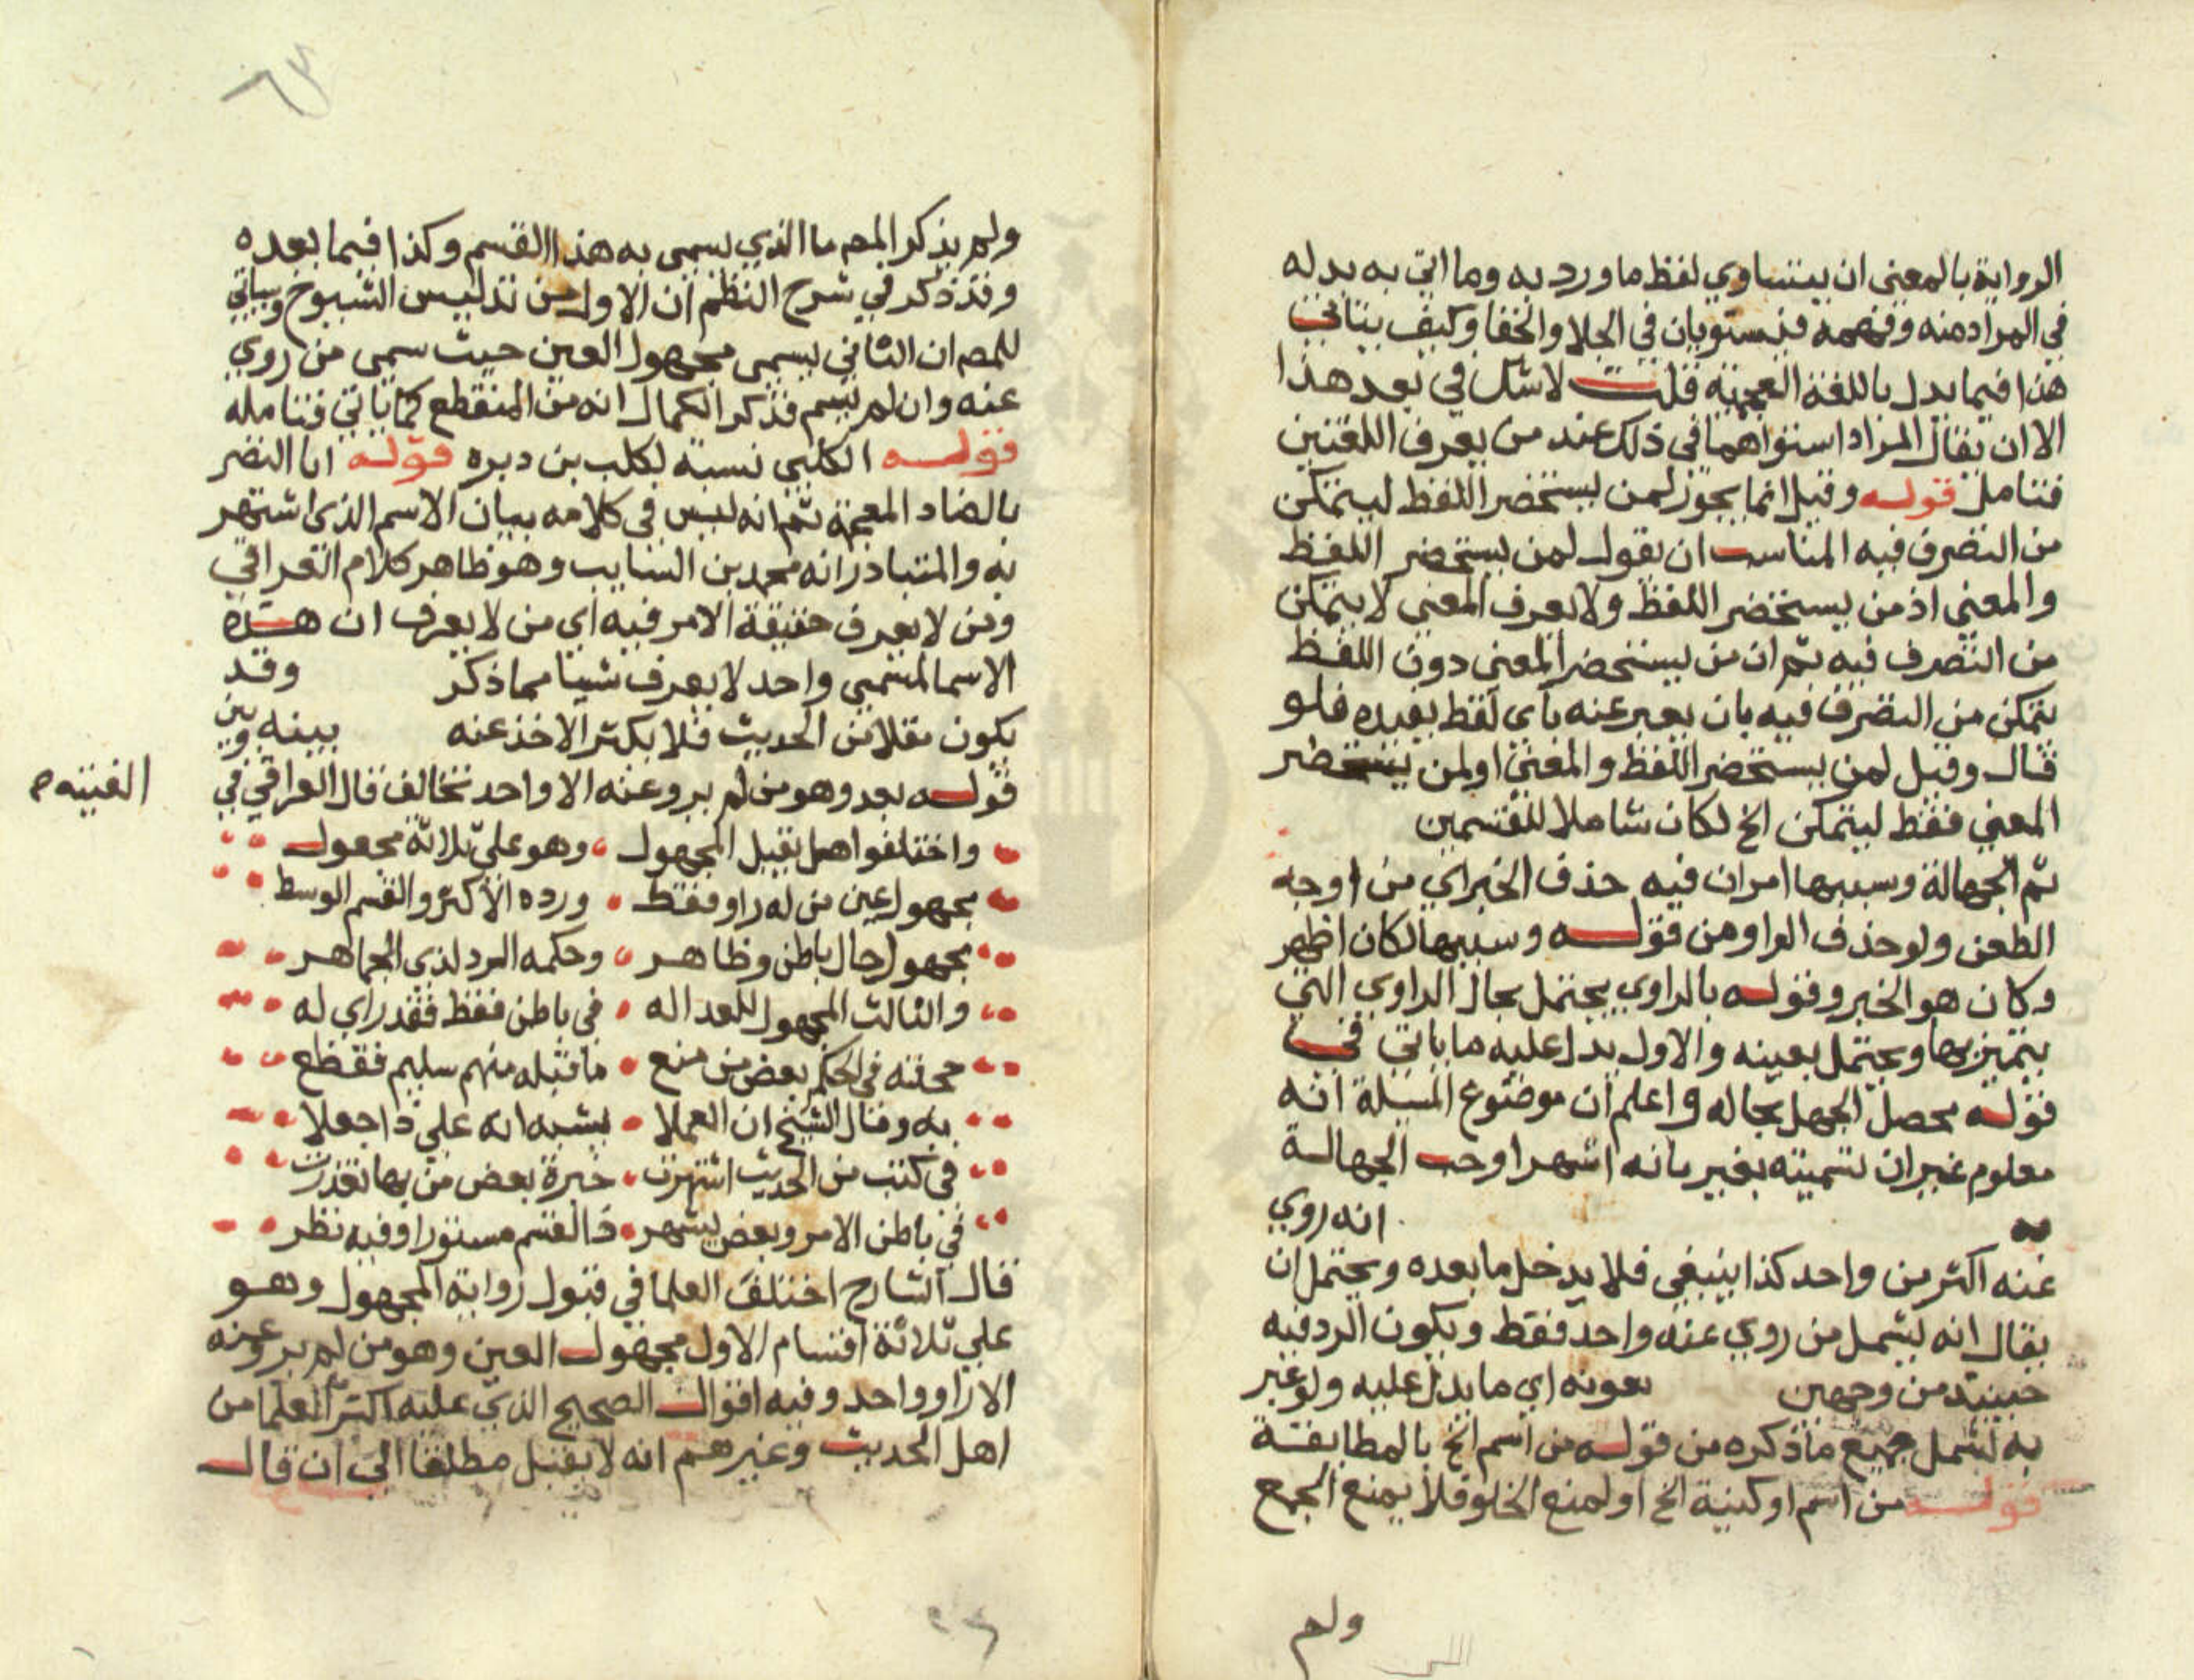 الرواية بالمعنى ان يتساوي لفظ ما ورد به وما اتي به بدله
في المراد منه وفهمه فيستويان في الجلا والخفا وكيف يتاتي
هذا فيما بدل باللغة العجمية قلت لا شك في بعد هذا
الا ان يقال المراد استواهما في ذلك عند من يعرف اللغتين
فتامل قوله وقيل انما يجوز لمن يستحضر اللفظ ليتمكن
من التصرف فيه المناسب ان يقول لمن يستحضر اللفظ
والمعني اذ من يستحضر اللفظ ولا يعرف المعني لا يتمكن
من التصرف فيه ثم ان من يستحضر المعني دون اللفظ
يتمكن من التصرف فيه بان يعبر عنه باي لفظ يفيده فلو
قال وقيل لمن يستحضر اللفظ والمعني او لمن يستحضر
المعني فقط ليتمكن الخ لكان شاملا للقسمين
ثم الجهالة وسببها امران فيه حذف الخبر اي من اوجه
الطعن ولو حذف الواو من قوله وسببها لكان اظهر
وكان هو الخبر وقوله بالراوي يحتمل بحال الراوي التي
يتميز بها ويحتمل بعينه والاول يدل عليه ما ياتي في
قوله محصل الجهل بحاله واعلم ان موضوع المسيلة انه
معلوم غير ان تسميته بغير ما به اشهر اوجب الجهالة
انه روي
عنه اكثر من واحد كذا ينبغي فلا يدخل ما بعده ويحتمل ان
يقال انه يشمل من روي عنه واحد فقط ويكون الرد فيه
حينيذ من وجهين نعوته اي ما يدل عليه ولو غير
به لشمل جميع ما ذكره من قوله من اسم الخ بالمطابقة
قوله من اسم او كنية الخ او لمنع الخلو فلا يمنع الجمع
ولم
ولم يذكر المص ما الذي يسمى به هذا القسم وكذا فيما بعده
وقد ذكر في شرح النظم ان الاول من تدليس الشيوخ وياتي
للمص ان الثاني يسمى مجهول العين حيث سمى من روي
عنه وان لم يسم فذكر الكمال انه من المنقطع كما ياتي فتامله
قوله الكلبي نسبة لكلب بن دبره قوله ابا النضر
بالضاد المعجمة ثم انه ليس في كلامه بيان الاسم الذي اشتهر
به والمتبادر انه محمد بن السايب وهو ظاهر كلام العراقي
ومن لا يعرف حقيقة الامر فيه اي من لا يعرف ان هذه
الاسما لمسمي واحد لا يعرف شيا مما ذكر وقد
يكون مقلا من الحديث فلا يكثر الاخذ عنه بينه وبين
قوله بعد وهو من لم يرو عنه الا واحد تخالف قال العراقي في
الفيته
واختلفوا هل يقبل المجهول وهو علي ثلاثة مجعول
مجهول عين من له راو فقط ورده الاكثر والقسم الوسط
مجهول حال باطن وظاهر وحكمه الرد لذي الجماهر
والثالث المجهول للعداله في باطن فقط فقد راي له
حجته في الحكم بعض من منع ما قبله منهم سليم فقطع
به وقال الشيخ ان العملا يشبه انه علي ذا جعلا
في كتب من الحديث اشتهرت خبرة بعض من بها تعذرت
في باطن الامر وبعض يشهر ذا القسم مستورا وفيه نظر
قال الشارح اختلف العلما في قبول رواية المجهول وهو
علي ثلاثة اقسام الاول مجهول العين وهو من لم يرو عنه
الا راو واحد وفيه اقوال الصحيح الذي عليه اكثر العلما من
اهل الحديث وغيرهم انه لا يقبل مطلقا الي ان قال